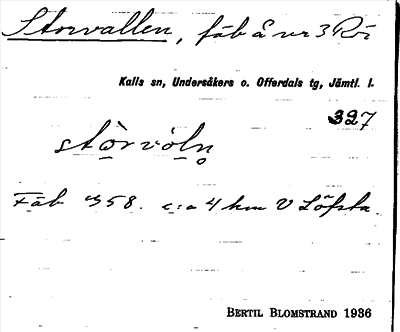 Storvallen, fäb å nr 3 Rö
Kalls sn, Undersåkers o. Offerdals tg, Jämtl. l.
327
stòrvòln̥
Fäb 358. c:a 4 km V Löfsta.
BERTIL BLOMSTRAND 1936